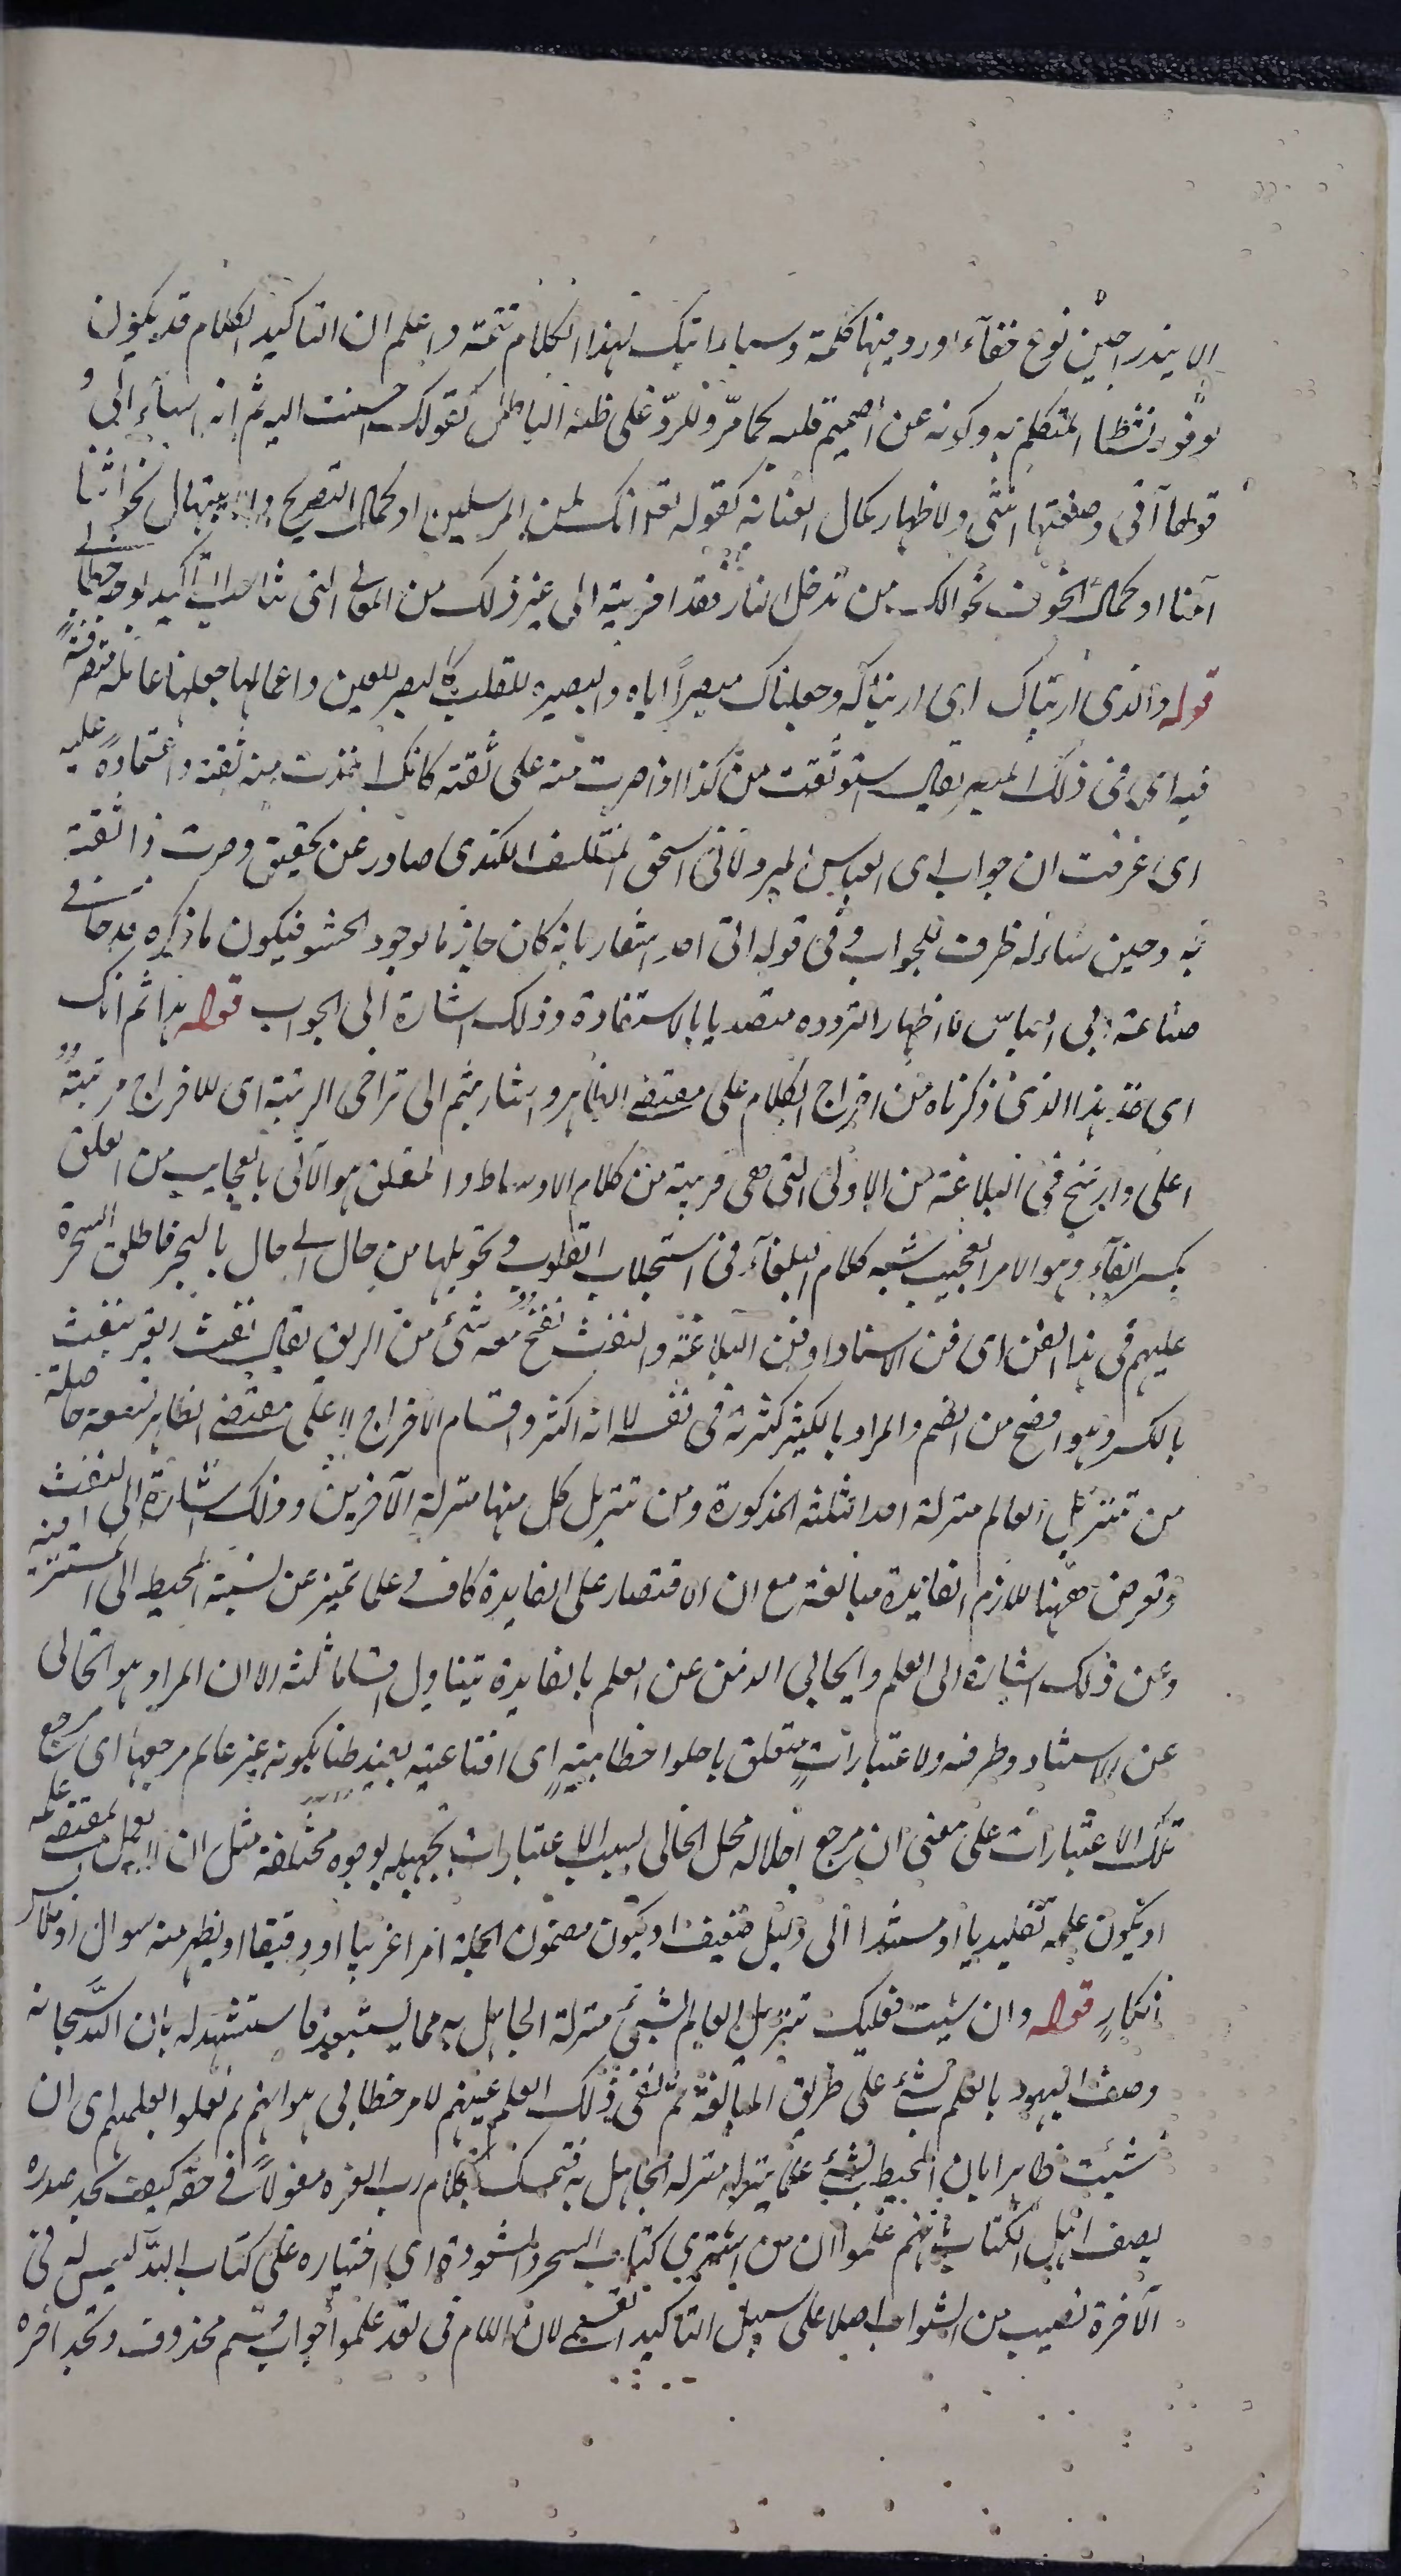 الا ينذر احين نوع خفآء اورد فيها كلمة وسماء اتيك لهذا الكلام تتمة واعلم ان التاكيد الكلام قد يكون
لوفور نشطا المتكلم به وكونه عن صميم قلبه كما مرّ وللردّ على ظنه الباطل كقولك احسنت اليه ثم انه اساء الىّ و
قولها انى وضعتها انثى ولاظهار كمال العناية كقوله تعالى انك لمن المرسلين او كمال التضرع والابتهال نحو اننا
آمنا او كمال الخوف نحو انك من تدخل النار فقد اخزيته الى غير ذلك من المعانى التى تناسب التاكيد لوجه خطابى
قوله والذى اريناك اى اريناكه وجعلناك مبصراً اياه والبصيره للقلب كالبصر للعين واعمالها جعلها عاملة متصرفةً
فيه اى فى ذلك المبصر يقال استوثقت من كذا اذا صرت منه على ثقة كانك اخذت منه ثقة واعتماداً عليه
اى عرفت ان جواب ابى العباس المبرد لابى اسحق المتفلسف الكندى صادر عن تحقيق وصرت ذا ثقة
به وحين سأله ظرف للجواب وفى قوله انى اجد اشعار بانه كان جازما بوجود الحشو فيكون ما ذكره قدحا فى
صناعة ابى العباس لا اظهارا لتردده متصديا بالاستفادة وذلك اشارة الى الجواب قوله هذا ثم انك
اى خذ هذا الذى ذكرناه من اخراج الكلام على مقتضى الظاهر واشار بثم الى تراخى الرتبة اى للاخراج مرتبةٌ
اعلى وارسخ فى البلاغة من الاولى التى هى قريبة من كلام الاوساط والمفلق هو الآتى بالعجايب من الفلق
بكسر الفآء وهو الامر العجيب شبه كلام البلغآء فى استجلاب القلوب وتحويلها من حال الى حال بالسحر فاطلق السحرة
عليهم فى هذا الفن اى فن الاسناد او فن البلاغة والنفث نفخٌ معه شئ من الريق يقال نفث الراقى ينفث
بالكسر وهو افصح من الضم والمراد بالكثير كثرته فى نفسه لا انه اكثر واقسام الاخراج لا على مقتضى الظاهر تسعة حاصلة
من تنزيل العالم منزلة احد الثلثة المذكورة ومن تنزيل كل منها منزلة الآخرين وذلك اشارة الى النفث
وتعرض ههنا للازم الفائدة مبالغة مع ان الاقتصار على الفايدة كاف وعلما تميز عن نسبة المحيط الى المستتر فيه
وعن ذلك اشارة الى العلم والخالى الذهن عن العلم بالفايدة يتناول اقساما ثلثة الا ان المراد هو الخالى
عن الاسناد وطرفيه ولاعتباراتٍ متعلق باحلوا خطابيةٍ اى اقناعية يفيد ظنا بكونه غير عالم مرجعها اى مرجع
تلك الاعتبارات على معنى ان مرجع احلاله محل الخالى بسبب الاعتبارات تجهيله بوجوه مختلفة مثل ان لا يعمل بمقتضى علمه
او يكون علمه تقليديا او مستندا الى دليل ضعيف او يكون مضمون الجملة امرا غريبا او دقيقا او يظهر منه سوال او ملابس
انكارٍ قوله وان شئت فعليك تنزيل العالم الشئ منزلة الجاهل به مما يستبعد فاستشهد له بان الله سبحانه
وصف اليهود بالعلم بشئ على طريق المبالغة ثم نفى ذلك العلم عنهم لامر خطابى هو انهم لم يعملوا بعلمهم اى ان
شئت ظاهرا بان المحيط بشئ علما ينزله منزلة الجاهل به فتمسك بكلام رب العزه مقولاً فى حقه كيف تجد صدره
يصف اهل الكتاب بانهم علموا ان من اشترى كتاب السحر والشعوذة اى اختياره على كتاب الله ليس له فى
الآخرة نصيب من الثواب اصلا على سبيل التاكيد القسمى لان اللام فى لقد علموا جواب قسم محذوف وتجد آخره